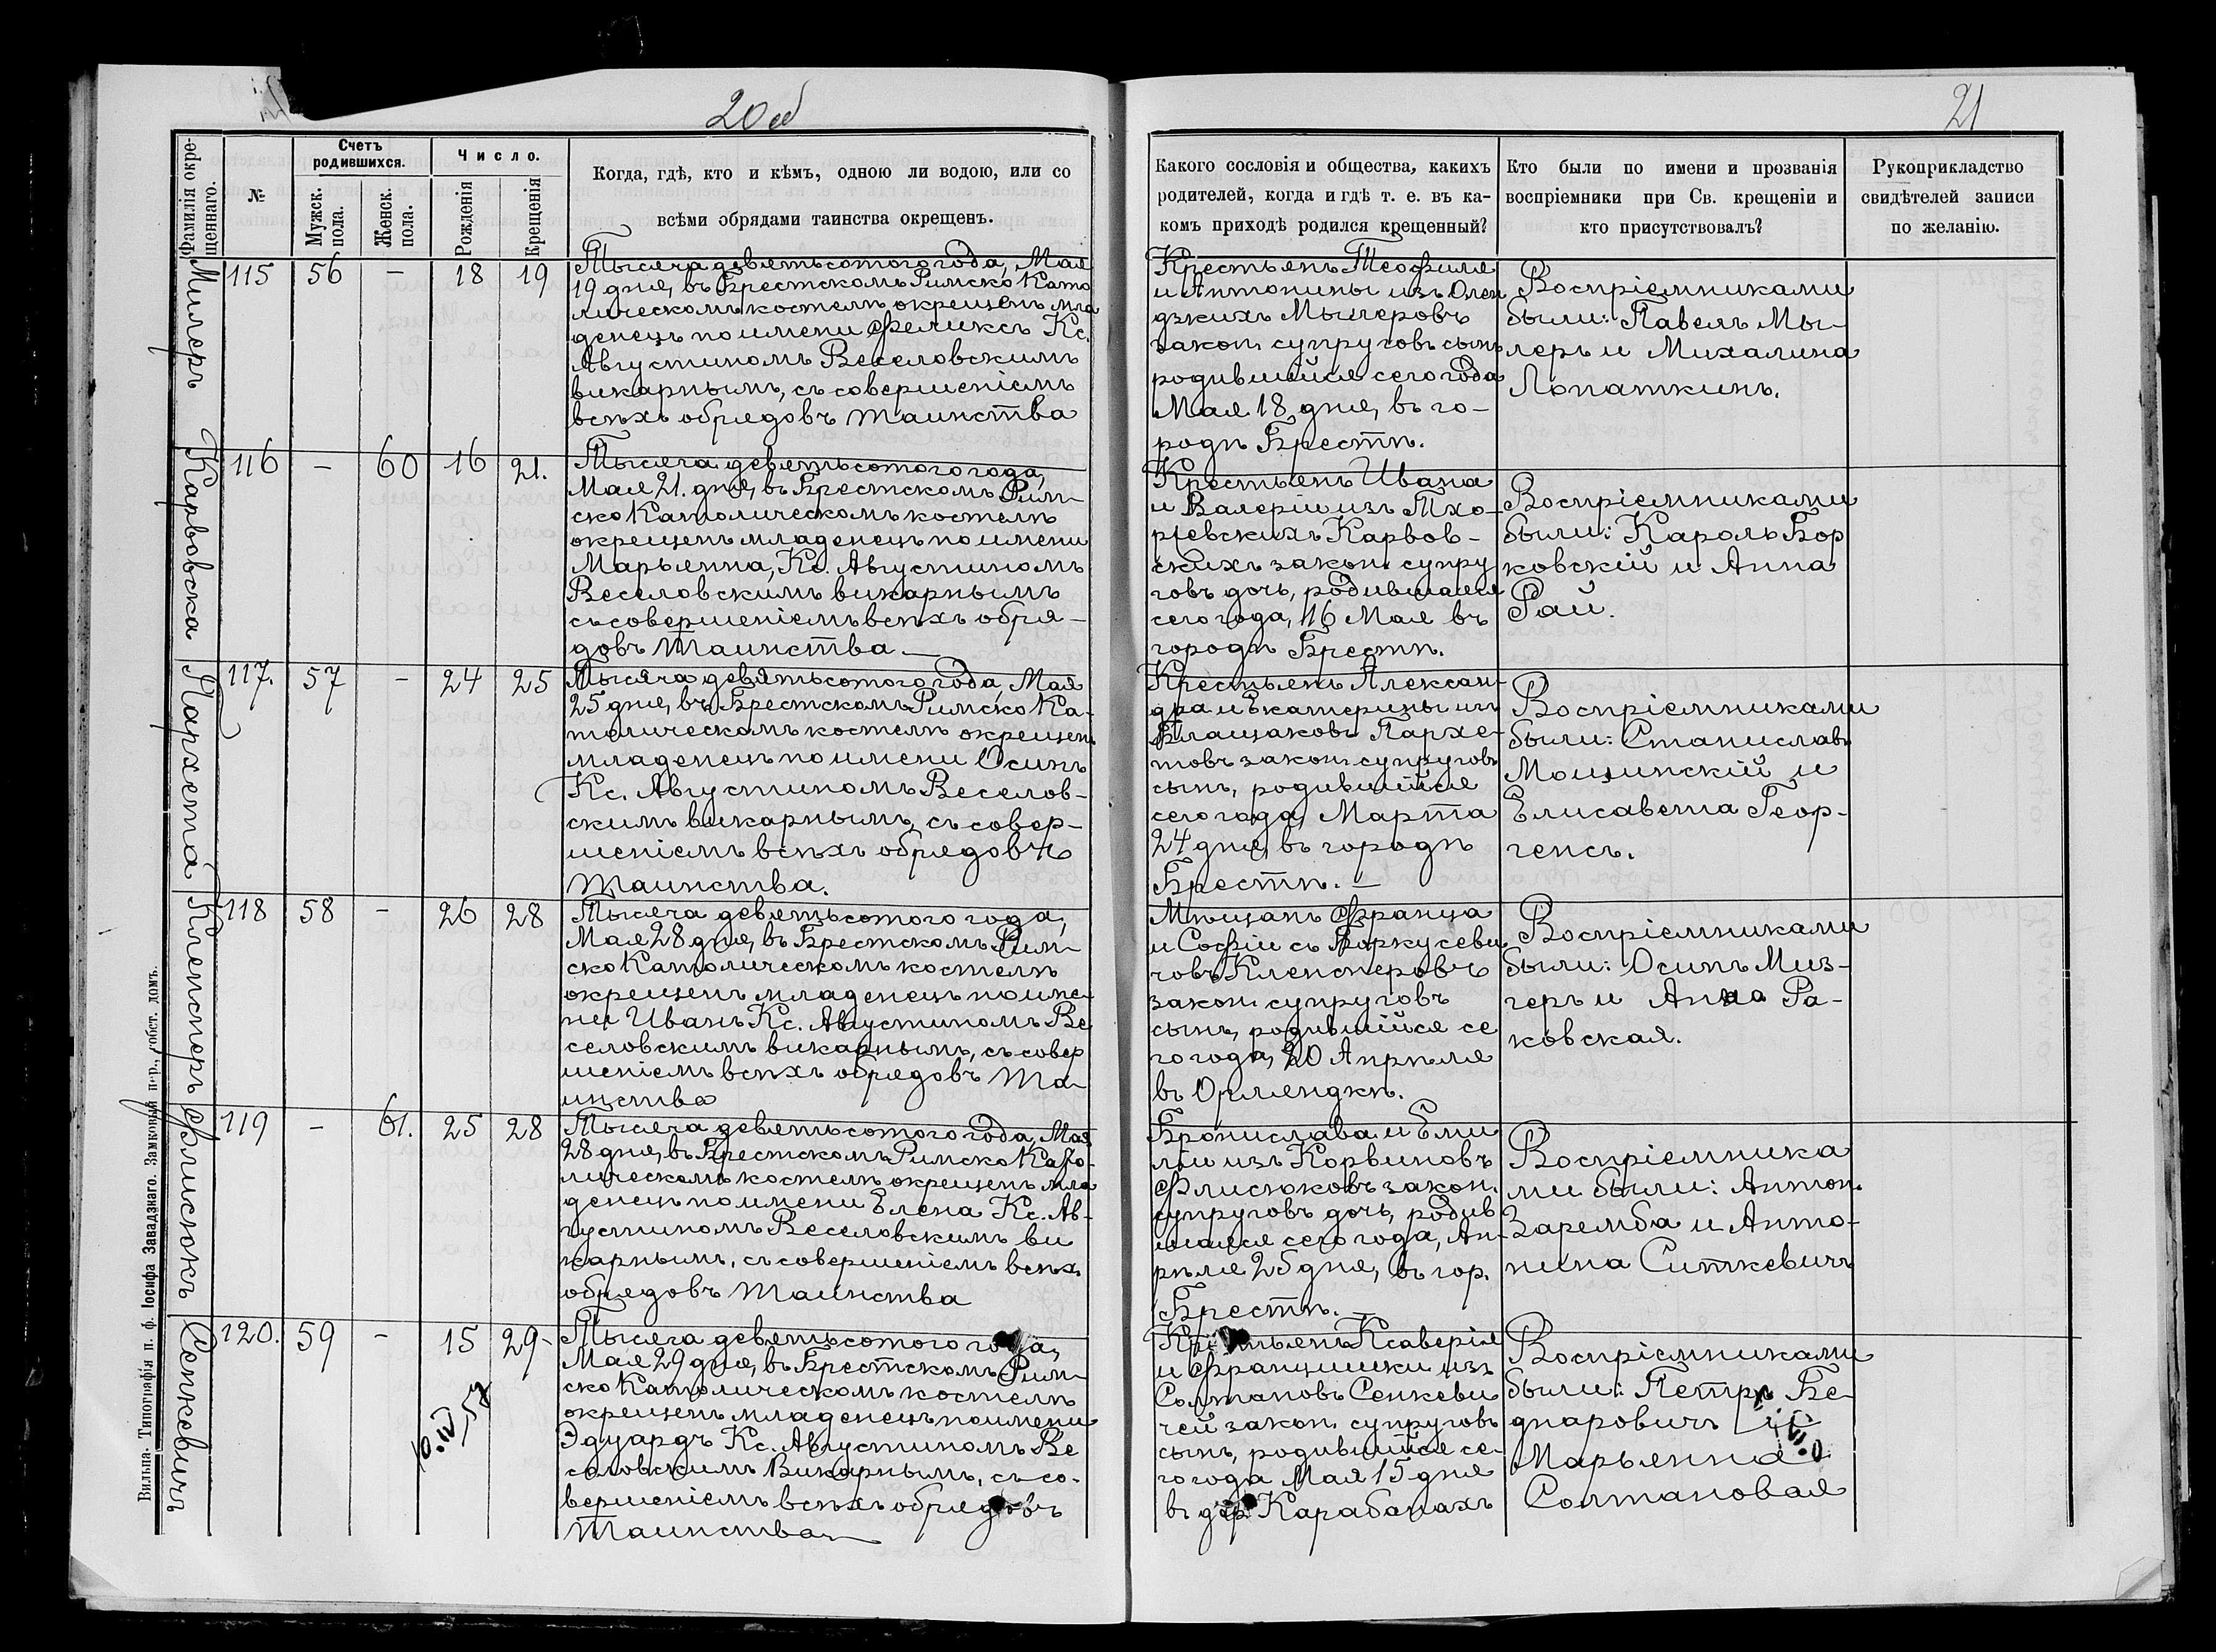 20 об
21
Фамилія окре-
щеннаго.
№
Счетъ
родившихся.
Мужск.
пола.
Женск.
пола.
Число.
Рожденія
Крещенія
Когда, гдѣ, кто и кѣмъ, одною ли водою, или со
всѣми обрядами таинства окрещенъ.
Какого сословія и общества, какихъ
родителей, когда и гдѣ т. е. въ ка-
комъ приходѣ родился крещенный?
Кто были по имени и прозванія
воспріемники при Св. крещеніи и
кто присутствовалъ?
Рукоприкладство
свидѣтелей записи
по желанію.
Милеръ
115 56 — 18 19
Тысяча девятьсотого года, Мая
19 дня, въ Брестскомъ Римско Като
лическомъ костелѣ окрещенъ мла
денецъ по имени Феликсъ Кс.
Августиномъ Веселовскимъ
викарнымъ, съ совершеніемъ
всѣхъ обрядовъ таинства
Крестьянъ Теофиля
и Антонины изъ Олен
дзкихъ Мылеровъ
закон. супруговъ сынъ
родившійся сего года
Мая 18 дня, въ го-
родѣ Брестѣ.
Воспріемниками
были: Павелъ Мы-
леръ и Михалина
Лопаткинъ.
Карвовска
116 — 60 16 21.
Тысяча девятьсотого года,
Мая 21. дня, въ Брестскомъ Рим-
ско Католическомъ костелѣ
окрещенъ младенецъ по имени
Марьянна, Кс. Августиномъ
Веселовскимъ викарнымъ
съ совершеніемъ всѣхъ обря-
довъ таинства. —
Крестьянъ Ивана
и Валеріи изъ Тхо-
ржевскихъ Карвов-
скихъ закон. супру
говъ дочь, родившаяся
сего года, 16 Мая въ
городѣ Брестѣ.
Воспріемниками
были: Кароль Бор
ковскій и Анна
Рай.
Пархета
117. 57 — 24 25
Тысяча девятьсотого года, Мая
25 дня, въ Брестскомъ Римско Ка-
толическомъ костелѣ окрещенъ
младенецъ по имени Осипъ
Кс. Августиномъ Веселов-
скимъ викарнымъ, съ совер-
шеніемъ всѣхъ обрядовъ
таинства.
Крестьянъ Алексан-
дра и Екатерины изъ
Флащаковъ Пархе-
товъ закон. супруговъ
сынъ, родившійся
сего года, Марта
24 дня, въ городѣ
Брестѣ. —
Воспріемниками
были: Станиславъ
Мощинскій и
Елисавета Геор-
генсъ.
Кленсперъ
118 58 — 26 28
Тысяча девятьсотого года,
Мая 28 дня, въ Брестскомъ Рим-
ско Католическомъ костелѣ
окрещенъ младенецъ по име-
ни Иванъ Кс. Августиномъ Ве
селовскимъ викарнымъ, съ совер
шеніемъ всѣхъ обрядовъ та-
инства
Мѣщанъ Франца
и Софіи съ Боркусеви
човъ Кленсперовъ
закон. супруговъ
сынъ, родившійся се
го года, 20 Апрѣля
въ Орляндкѣ.
Воспріемниками
были: Осипъ Миз-
геръ и Анна Ра-
ковская.
Флисюкъ
119 — 61. 25 28
Тысяча девятьсотого года, Мая
28 дня, въ Брестскомъ Римско Като-
лическомъ костелѣ окрещенъ мла
денецъ по имени Елена Кс. Ав-
густиномъ Веселовскимъ ви
карнымъ, съ совершеніемъ всѣхъ
обрядовъ таинства
Бронислава и Еми
ліи изъ Корвиновъ
Флисюковъ закон.
супруговъ дочь, родив
шаяся сего года, Ап-
рѣля 25 дня, въ гор.
Брестѣ. —
Воспріемника
ми были: Антон.
Заремба и Анто-
нина Ситкевичъ
Сенкевичъ
120. 59 — 15 29-
Тысяча девятьсотого года,
Мая 29 дня, въ Брестскомъ Рим-
ско Католическомъ костелѣ
окрещенъ младенецъ по имени
Эдуардъ Кс. Августиномъ Ве
селовскимъ Викарнымъ, съ со-
вершеніемъ всѣхъ обрядовъ
таинства
Крестьянъ Ксаверія
и Францишки изъ
Солтановъ Сенкеви
чей закон. супруговъ
сынъ, родившійся се-
го года Мая 15 дня
въ дер. Карабанахъ
Воспріемниками
были: Петръ Бе-
днаровичъ и
Марьянна
Солтановая
Вильна. Типографія п. ф. Іосифа Завадзкаго. Замковый пер., собст. домъ.